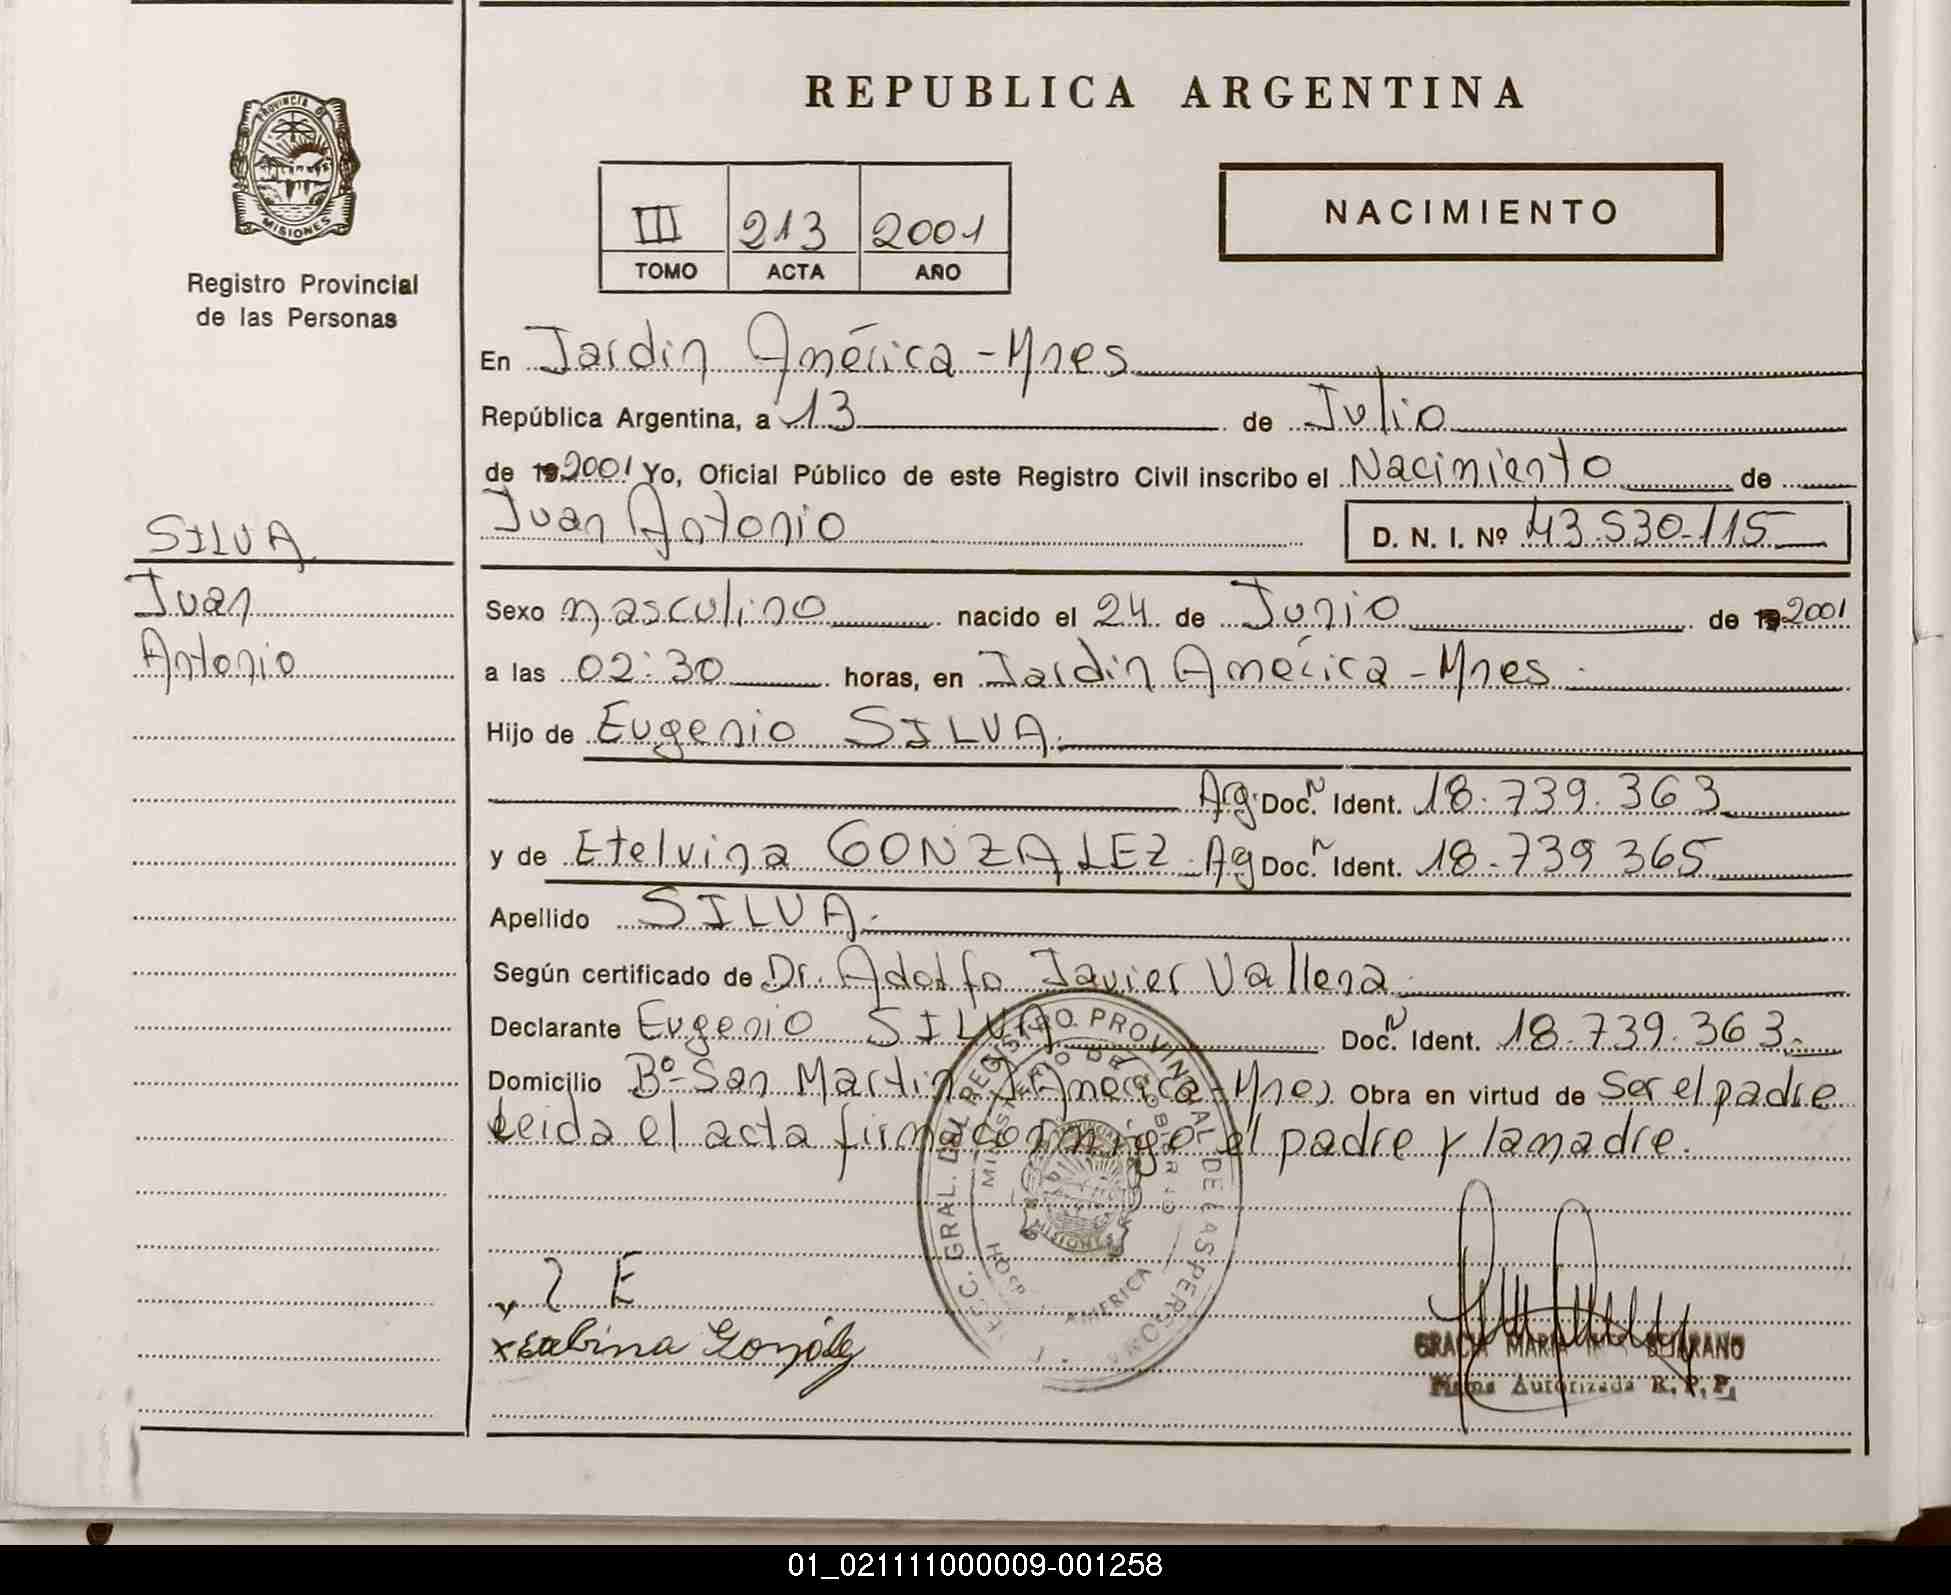 REPUBLICA ARGENTINA
PROVINCIA DE
MISIONES
Registro Provincial
de las Personas
III 213 2001
TOMO ACTA AÑO
NACIMIENTO
En Jardin América - Mnes
República Argentina, a 13 de Julio
de 19 2001 Yo, Oficial Público de este Registro Civil inscribo el Nacimiento de
Juan Antonio D. N. I. Nº 43.530.115
SILVA
Juan
Antonio
Sexo masculino nacido el 24 de Junio de 19 2001
a las 02:30 horas, en Jardin América - Mnes.
Hijo de Eugenio SILVA.
Arg. Doc. N Ident. 18.739.363
y de Etelvina GONZALEZ. Ag Doc. N Ident. 18.739 365
Apellido SILVA.
Según certificado de Dr. Adolfo Javier Vallena.
Declarante Eugenio SILVA Doc. N Ident. 18.739.363.
Domicilio Bº San Martin J. America - Mnes. Obra en virtud de Ser el padre
Leida el acta firma conmigo el padre y la madre.
GRAL. DEL REGISTRO PROVINCIAL DE LAS PERSONAS
MINISTERIO DE GOBIERNO
MISIONES
AMERICA
González
GRACIA MARIA
Firma Autorizada R. P. P.
01_021111000009-001258